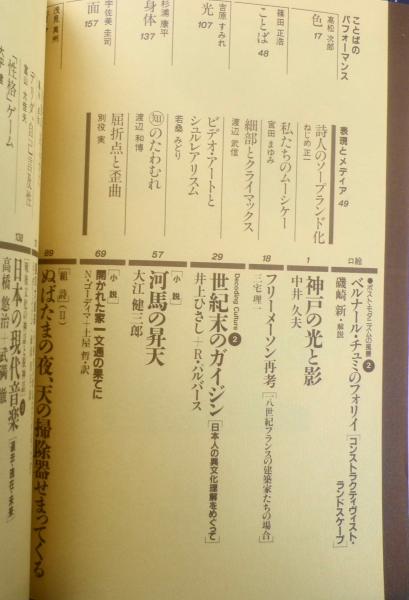 口絵
●ポスト・モダニズムの風景❷
ベルナール・チュミのフォリイ[コンストラクティヴィスト・ランドスケープ]
磯崎 新・解説
1
神戸の光と影
中井 久夫
18
フリーメーソン再考[一八世紀フランスの建築家たちの場合]
三宅 理一
29
Decoding Culture ❷
世紀末のガイジン[日本人の異文化理解をめぐって]
井上ひさし+R・パルバース
57
[小説]
河馬の昇天
大江 健三郎
69
[小説]
開かれた家 一文通の果てに
N・ゴーディマ+土屋 哲・訳
89
[組詩]
ぬばたまの夜、天の掃除器せまってくる
138
日本の現代音楽[過去・現在・未来]
高橋 悠治+武満 徹
表現とメディア 49
詩人のソープランド化
ねじめ 正一
私たちのムーシケー
宮田 まゆみ
細部とクライマックス
渡辺 武信
ビデオ・アートと
シュルレアリスム
若桑 みどり
㊙のたわむれ
渡辺 和博
屈折点と歪曲
別役 実
「性格」ゲーム
ことばの
パフォーマンス
高松 次郎
色 17
篠田 正浩
ことば 48
吉原 すみれ
光 107
杉浦 康平
身体 137
宇佐美 圭司
面 157
浅見 真州